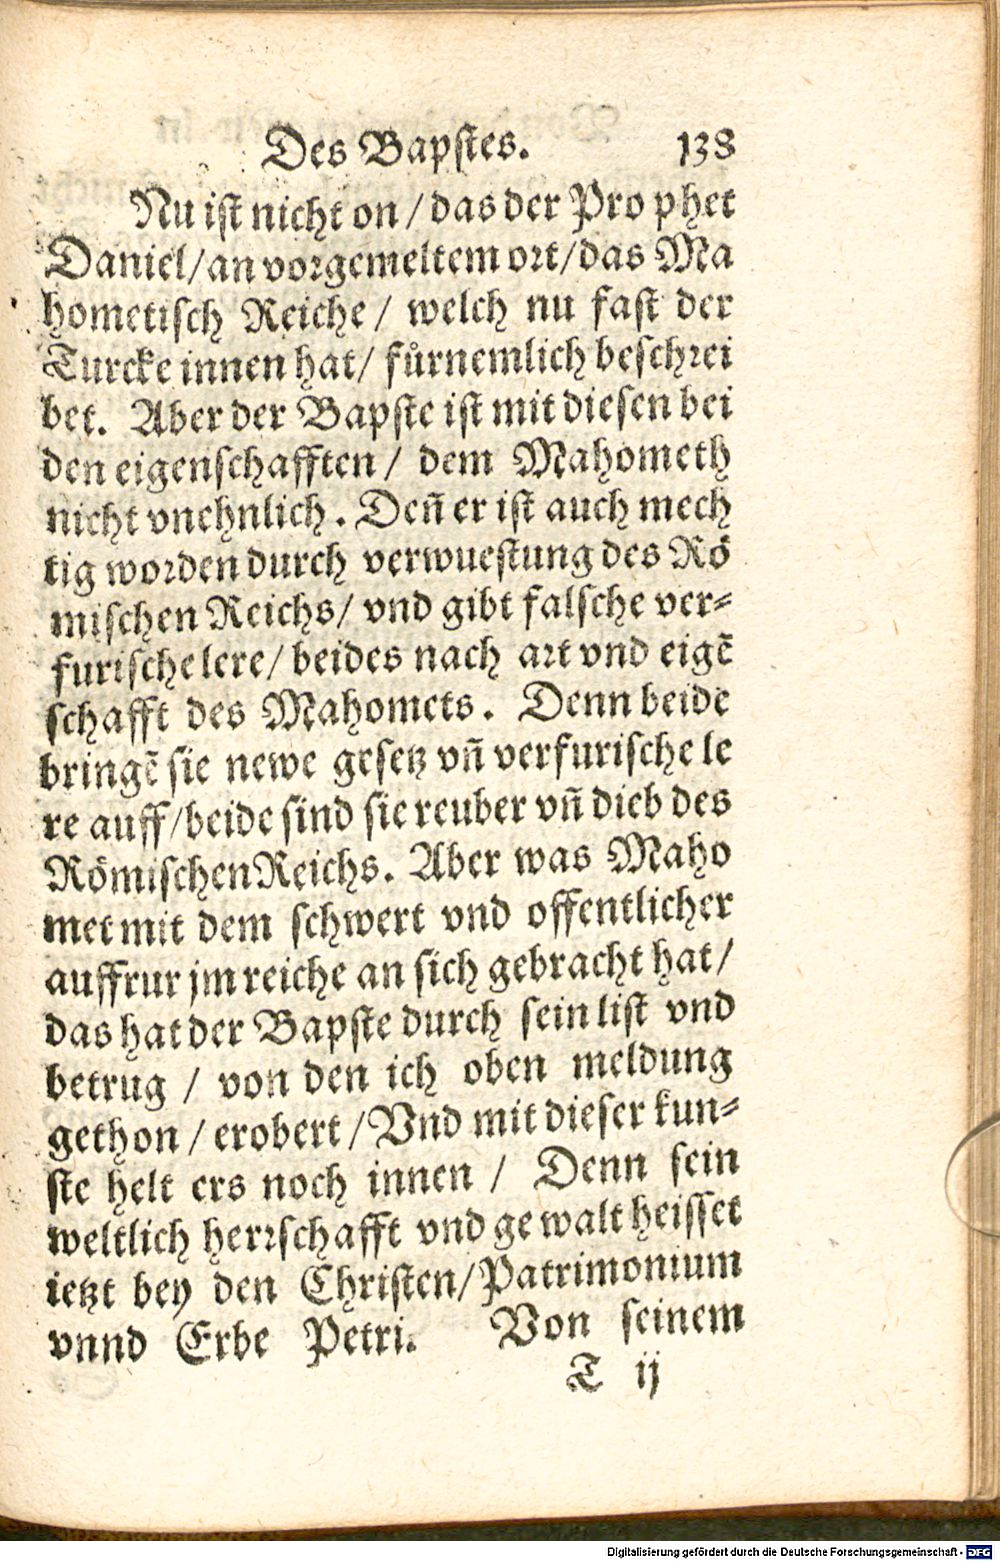 Des Bapstes. 138
Nu ist nicht on / das der Prophet
Daniel / an vorgemeltem ort / das Ma
hometisch Reiche / welch nu fast der
Turcke innen hat / fůrnemlich beschrei
bet. Aber der Bapste ist mit diesen bei
den eigenschafften / dem Mahometh
nicht vnehnlich. Deñ er ist auch mech
tig worden durch verwuestung des Rö
mischen Reichs / vnd gibt falsche ver-
furische lere / beides nach art vnd eigẽ
schafft des Mahomets. Denn beide
bringẽ sie newe gesetz vñ verfurische le
re auff / beide sind sie reuber vñ dieb des
Römischen Reichs. Aber was Maho
met mit dem schwert vnd offentlicher
auffrur jm reiche an sich gebracht hat /
das hat der Bapste durch sein list vnd
betrug / von den ich oben meldung
gethon / erobert / Vnd mit dieser kun-
ste helt ers noch innen / Denn sein
weltlich herrschafft vnd gewalt heisset
ietzt bey den Christen / Patrimonium
vnnd Erbe Petri. Von seinem
T ij
Digitalisierung gefördert durch die Deutsche Forschungsgemeinschaft - DFG